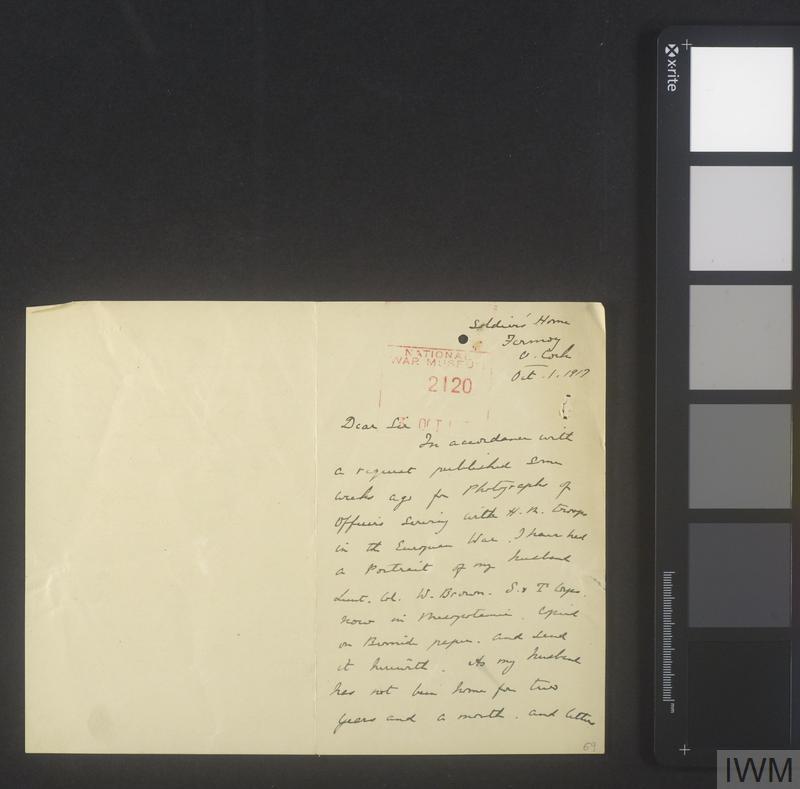 Soldiers' Home
Fermoy
Co. Cork
Oct. 1. 1917
NATIONAL
WAR MUSEUM
2120
OCT
Dear Sir
In accordance with
a request published some
weeks ago for Photographs of
Officers serving with H.M. troops
in the European War. I have had
a Portrait of my husband
Lieut. Col. W. Brown. S. & T Corps.
now in Mesopotamia. Copied
on Bromide paper. and send
it herewith. As my husband
has not been home for two
years and a month. and letters
69
x-rite
mm
IWM